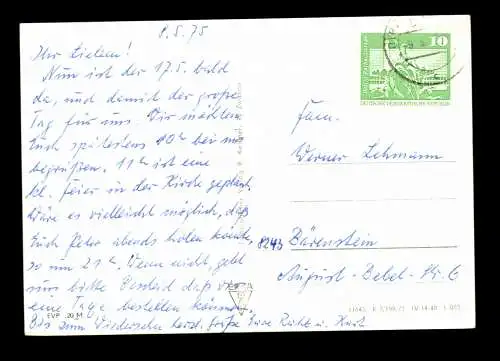 8.5.75
Ihr Lieben!
Nun ist der 17.5. bald
da, und damit der große
Tag für uns. Wir möchten
Euch spätestens 10°° bei uns
begrüßen. 11°° ist eine
kl. Feier in der Kirche geplant.
Wäre es vielleicht möglich, daß
Euch Peter abends holen könnt,
so um 21°°. Wenn nicht, gebt
uns bitte Bescheid daß wir
eine Taxe bestellen können.
Bis zum Wiedersehen herzl. Grüße Eure
EVP .20 M
10
DEUTSCHE DEMOKRATISCHE REPUBLIK
Fam.
Werner Lehmann
8243 Bärenstein
August-Bebel-Str. 6